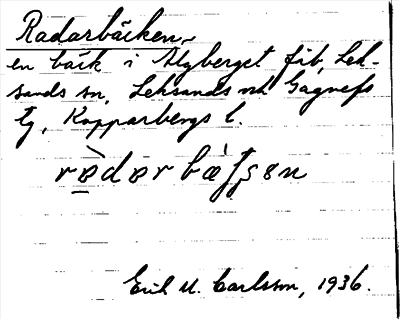 Radarbäcken,
en bäck i Älgberget fäb, Lek-
sands sn, Leksands och Gagnefs
tg, Kopparbergs l.
Erik M. Carlsson, 1936.